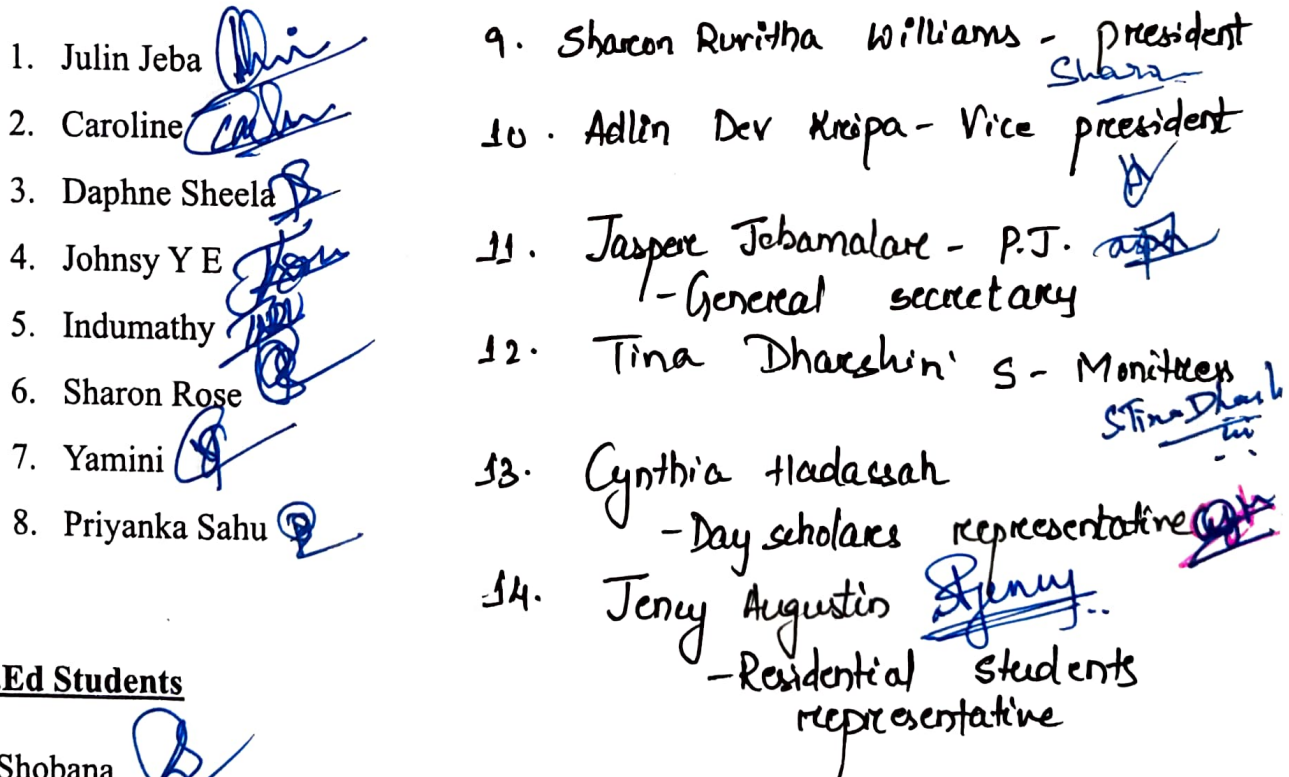 1. Julin Jeba
2. Caroline
3. Daphne Sheela
4. Johnsy Y E
5. Indumathy
6. Sharon Rose
7. Yamini
8. Priyanka Sahu
.Ed Students
Shobana
9. Sharon Ruritha Williams - president
Sharon
10. Adlin Dev Kripa - Vice president
11. Jasper Jebamalar - P.J.
- General secretary
12. Tina Dharshini S - Monitress
S Tina Dharshini
13. Cynthia Hadassah
- Day scholars representative
14. Jency Augustin Jency
- Residential students
representative